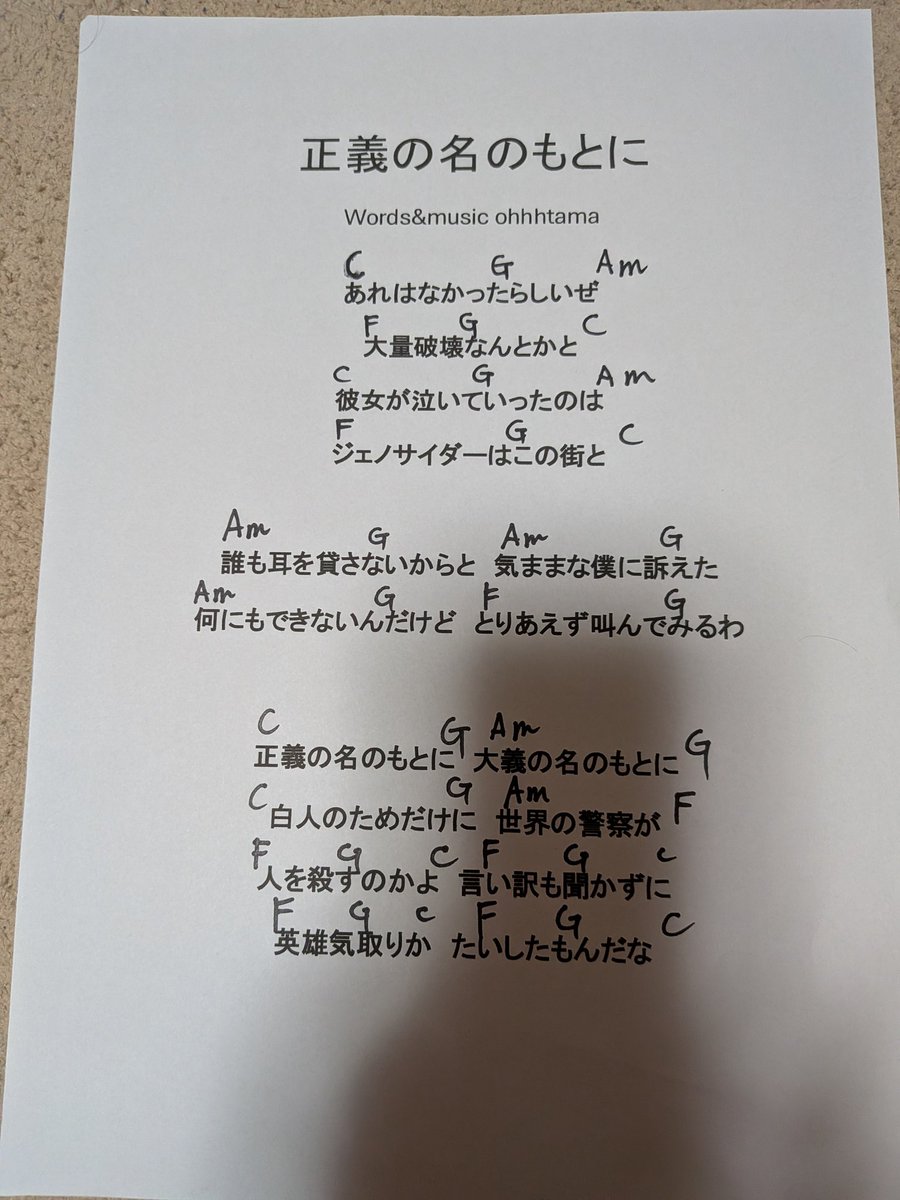 正義の名のもとに
Words&music ohhhtama
C G Am
あれはなかったらしいぜ
F G C
大量破壊なんとかと
C G Am
彼女が泣いていったのは
F G C
ジェノサイダーはこの街と
Am G Am G
誰も耳を貸さないからと 気ままな僕に訴えた
Am G F G
何にもできないんだけど とりあえず叫んでみるわ
C G Am G
正義の名のもとに 大義の名のもとに
C G Am F
白人のためだけに 世界の警察が
F G C F G C
人を殺すのかよ 言い訳も聞かずに
F G C F G C
英雄気取りか たいしたもんだな